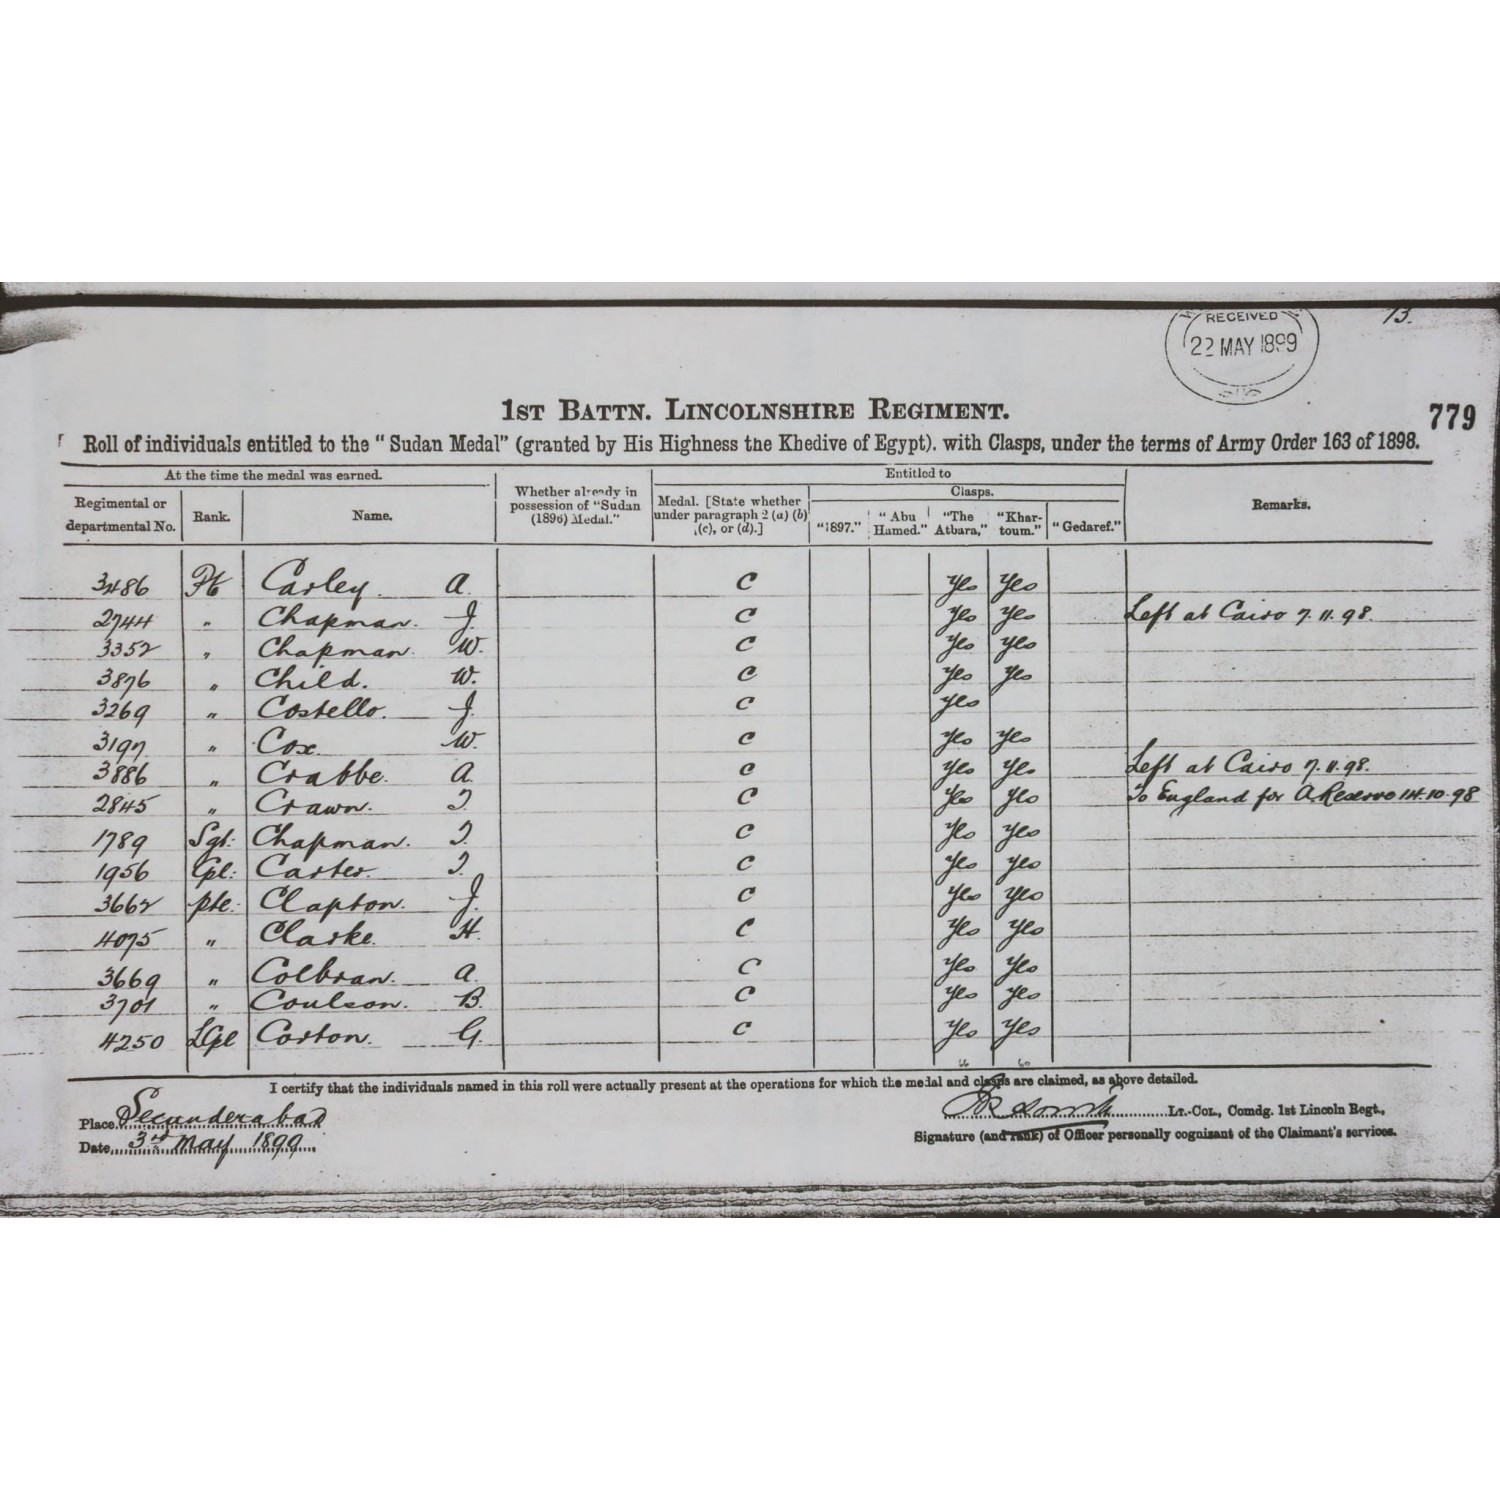 RECEIVED
22 MAY 1899
13.
1ST BATTN. LINCOLNSHIRE REGIMENT.
779
Roll of individuals entitled to the "Sudan Medal" (granted by His Highness the Khedive of Egypt). with Clasps, under the terms of Army Order 163 of 1898.
At the time the medal was earned.
Regimental or departmental No.
Rank.
Name.
Whether already in possession of "Sudan (1896) Medal."
Entitled to
Medal. [State whether under paragraph 2 (a) (b) (c), or (d).]
Clasps.
"1897."
"Abu Hamed."
"The Atbara,"
"Khar-toum."
"Gedaref."
Remarks.
3486 Pt Carley. A. C Yes Yes
2744 " Chapman. J. C Yes Yes Left at Cairo 7.11.98.
3352 " Chapman. W. C Yes Yes
3876 " Child. W. C Yes Yes
3269 " Costello. J. C Yes
3197 " Cox. W. C Yes Yes
3886 " Crabbe. A. C Yes Yes Left at Cairo 7.11.98.
2845 " Crawn. T. C Yes Yes To England for A. Reserve 14.10.98
1789 Sgt. Chapman. T. C Yes Yes
1956 Cpl. Carter. T. C Yes Yes
3662 pte. Clapton. J. C Yes Yes
4075 " Clarke. H. C Yes Yes
3669 " Colbran. A. C Yes Yes
3701 " Coulson. B. C Yes Yes
4250 LCpl Corton. G. C Yes Yes
I certify that the individuals named in this roll were actually present at the operations for which the medal and clasps are claimed, as above detailed.
Place. Secunderabad
LT.-COL., Comdg. 1st Lincoln Regt.,
Date 3rd May 1899
Signature (and rank) of Officer personally cognizant of the Claimant's services.